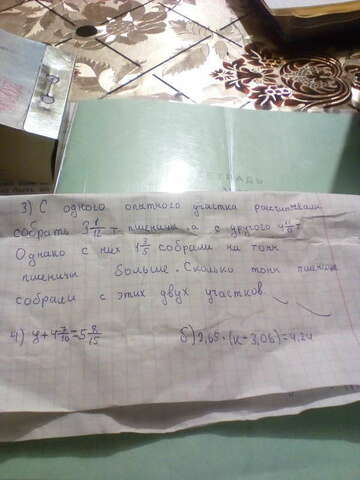 ТЕТРАДЬ
3) С одного опытного участка рассчитывали
собрать т пшеницы, а с другого т.
Однако с них 1 3/5 собрали на тонн
пшеницы больше. Сколько тонн пшеницы
собрали с этих двух участков.
4) y+4 7/10=5 8/15 б) 2,65·(x-3,06)=4,24